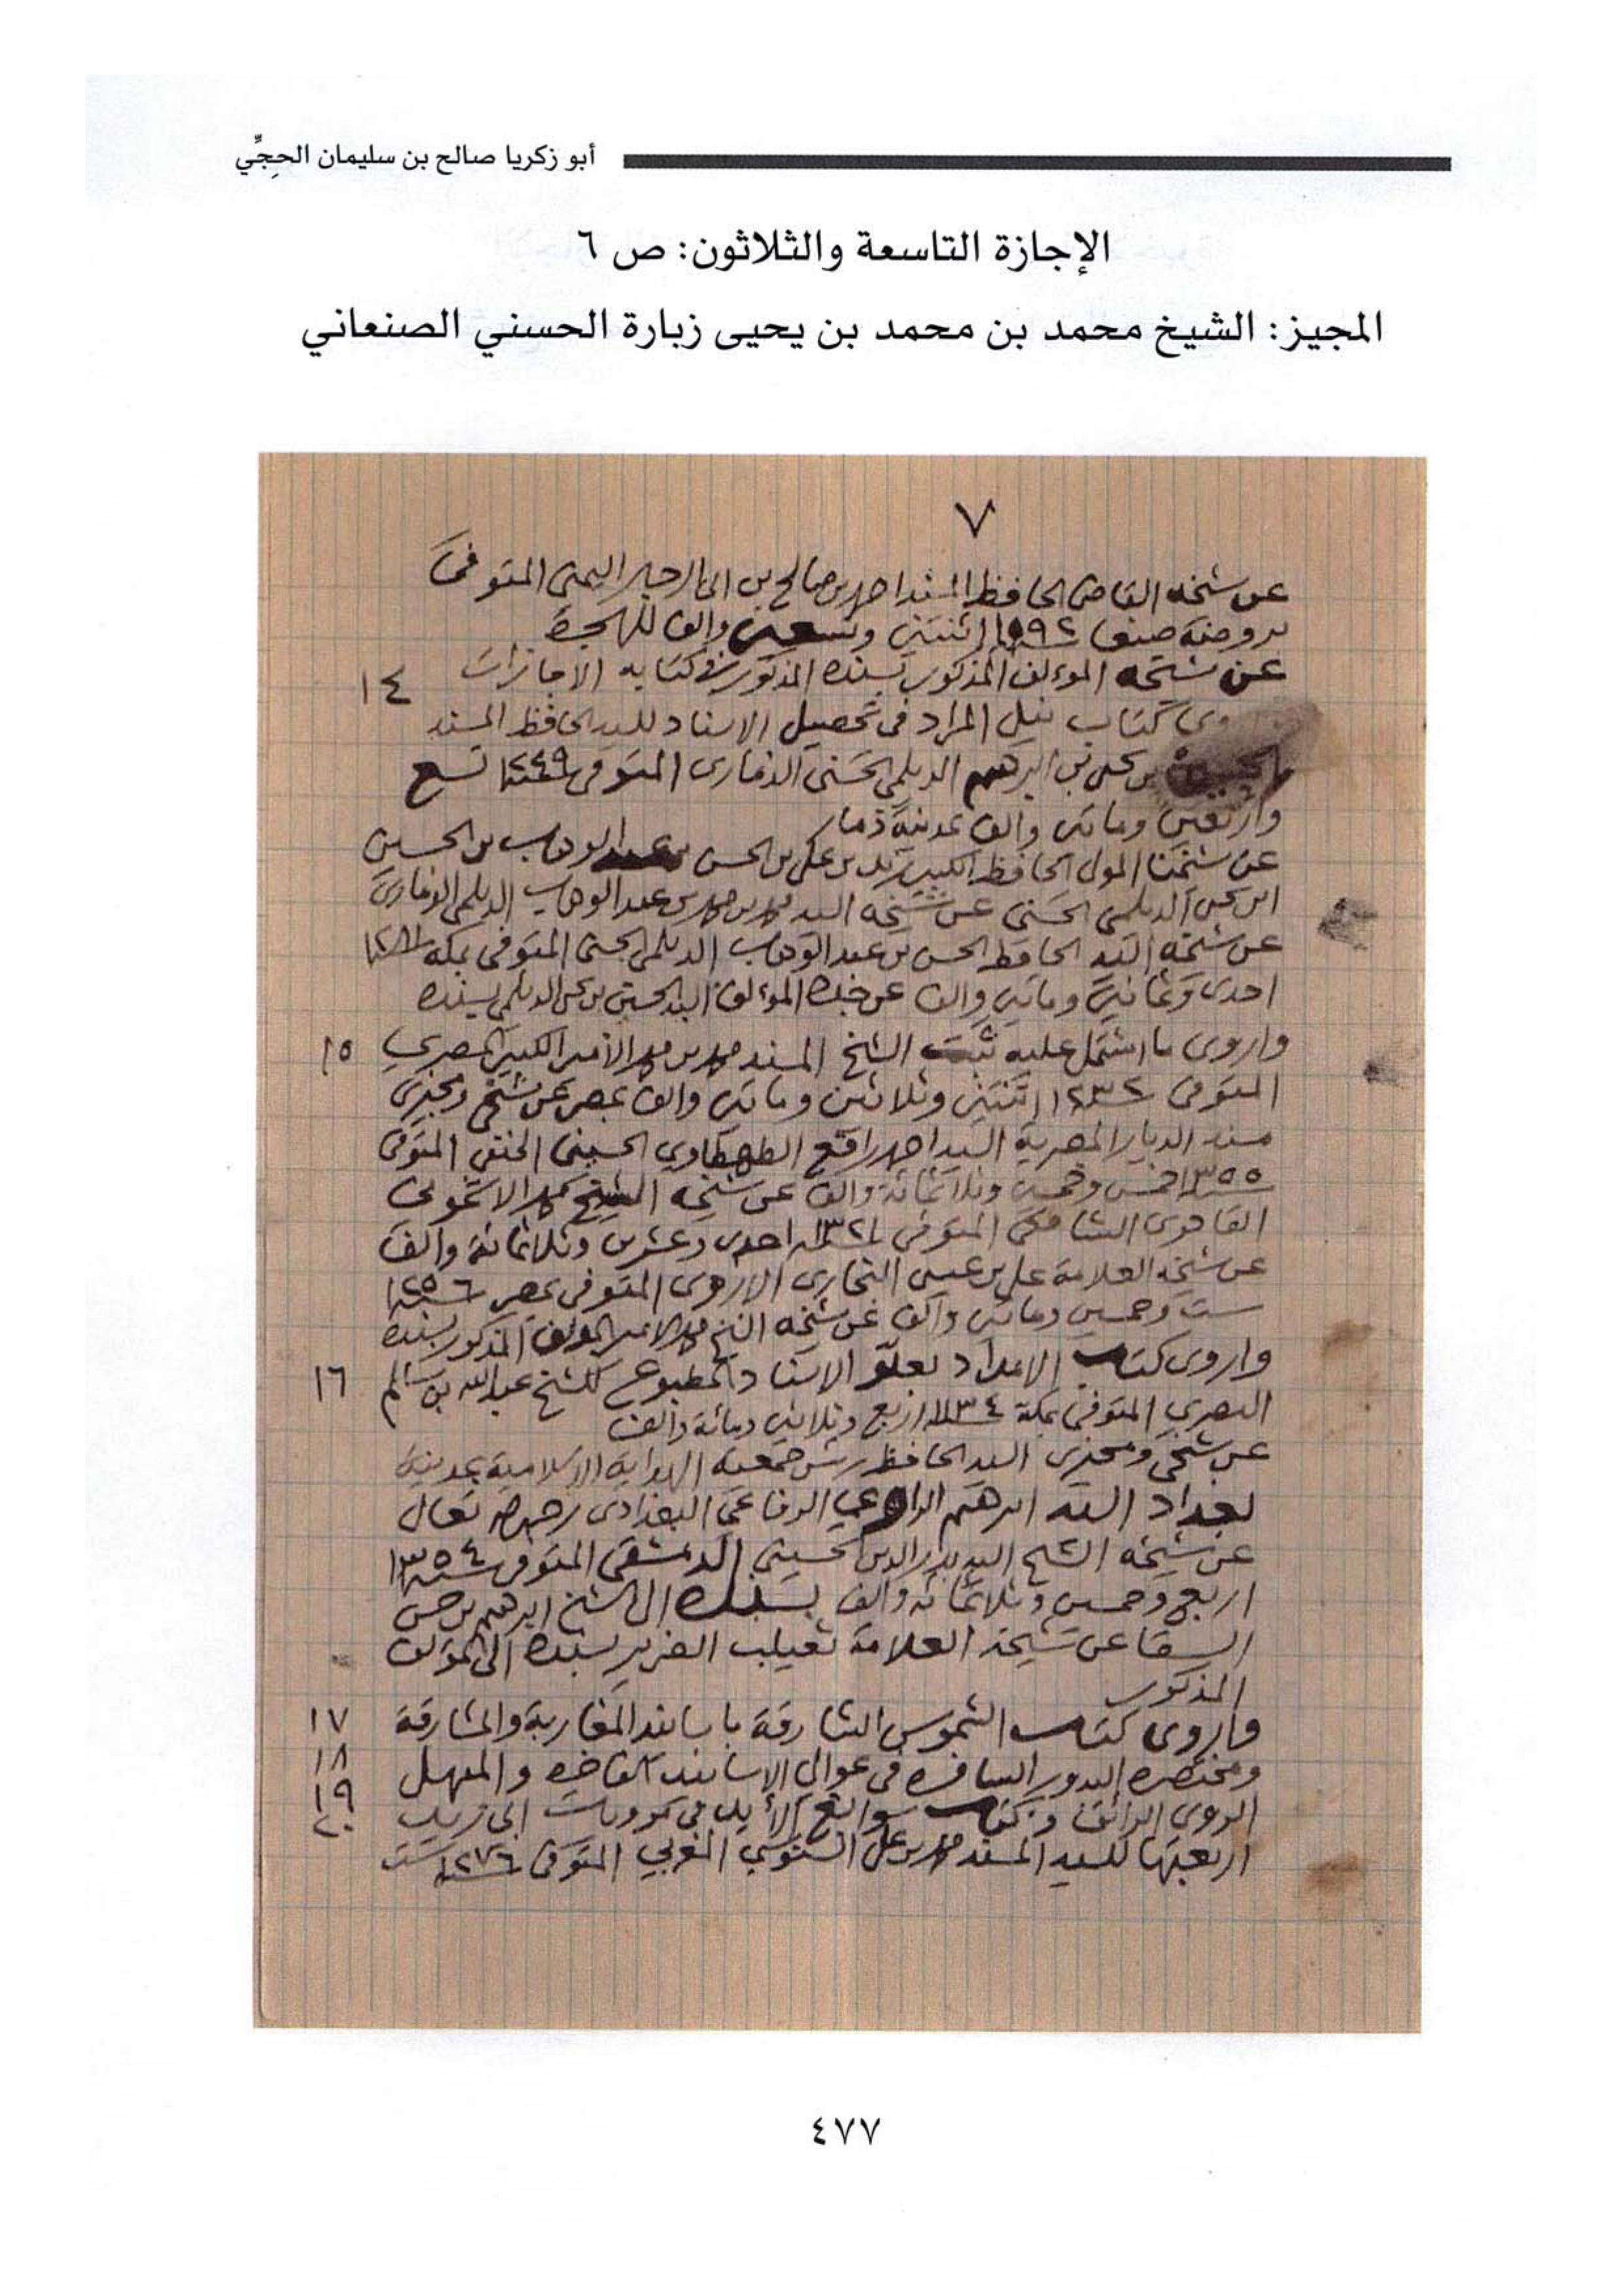 أبو زكريا صالح بن سليمان الحجِّي
الإجازة التاسعة والثلاثون: ص ٦
المجيز: الشيخ محمد بن محمد بن يحيى زبارة الحسني الصنعاني
٧
عن شيخه القاضي الحافظ المسند احمد بن صالح بن ابي الرجال اليمني المتوفى
بروضة صنعا ١٠٩٢ اثنتين وتسعين والف للهجرة
عن شيخه المؤلف المذكور بسنده المذكور في كتابه الاجازات
١٤
كتاب نيل المراد في تحصيل الاسناد للسيد الحافظ المسند
بن يحيى بن ابرهيم الديلمي الحسني الذماري المتوفى سنة ١٢٤٩ تسع
واربعين وماتين والف بمدينة ذمار
عن شيخنا المولى الحافظ الكبير زيد بن علي بن الحسن بن عبد الوهاب بن الحسين
ابن يحيى الديلمي الحسني عن شيخه السيد محمد بن محمد بن عبد الوهاب الديلمي الذماري
عن شيخه السيد الحافظ الحسن بن عبد الوهاب الديلمي الحسني المتوفى بمكة ١٢٨١
احدى وثمانين وماتين والف عن جده المؤلف السيد الحسين بن يحيى الديلمي بسنده
١٥
واروى ما اشتمل عليه ثبت الشيخ المسند محمد بن محمد الأمير الكبير المصري
المتوفى ١٢٣٢ اثنتين وثلاثين وماتين والف بمصر عن شيخي ومجيزي
مسند الديار المصرية السيد احمد رافع الطهطاوي الحسيني الحنفي المتوفى
١٣٥٥ خمس وخمسين وثلاثمائة والف عن شيخه الشيخ محمد الاشموني
الشافعي المتوفى ١٣٢١ احدى وعشرين وثلاثمائة والف
عن شيخه العلامة علي بن عيسى النجاري المتوفى بمصر سنة ١٢٥٦
ست وخمسين وماتين والف عن شيخه الشيخ محمد الامير المؤلف المذكور بسنده
١٦
واروى كتاب الامداد بعلو الاسناد المطبوع للشيخ عبد الله بن سالم
البصري المتوفى بمكة سنة ١١٣٤ اربع وثلاثين ومائة والف
عن شيخي ومجيزي السيد الحافظ رئيس جمعية الهداية الاسلامية بمدينة
بغداد السيد ابرهيم الراوي الرفاعي البغدادي رحمه الله تعالى
عن شيخه الشيخ السيد بدر الدين الحسيني الدمشقي المتوفى سنة ١٣٥٤
اربع وخمسين وثلاثمائة والف بسنده الى الشيخ ابرهيم بن حسن
السقا عن شيخه العلامة ثعيلب الضرير بسنده الى المؤلف
المذكور
١٧
واروى كتاب الشموس الشارقة باسانيد المغاربة والمشارقة
١٨
ومختصره البدور السافرة في عوالي الاسانيد الفاخرة والمنهل
١٩
الروي الرائق وكتاب سوابغ الأيد في مرويات ابي زيد
٢٠
اربعتها للسيد المسند محمد بن علي السنوسي المغربي المتوفى ١٢٧٦ ست
٤٧٧